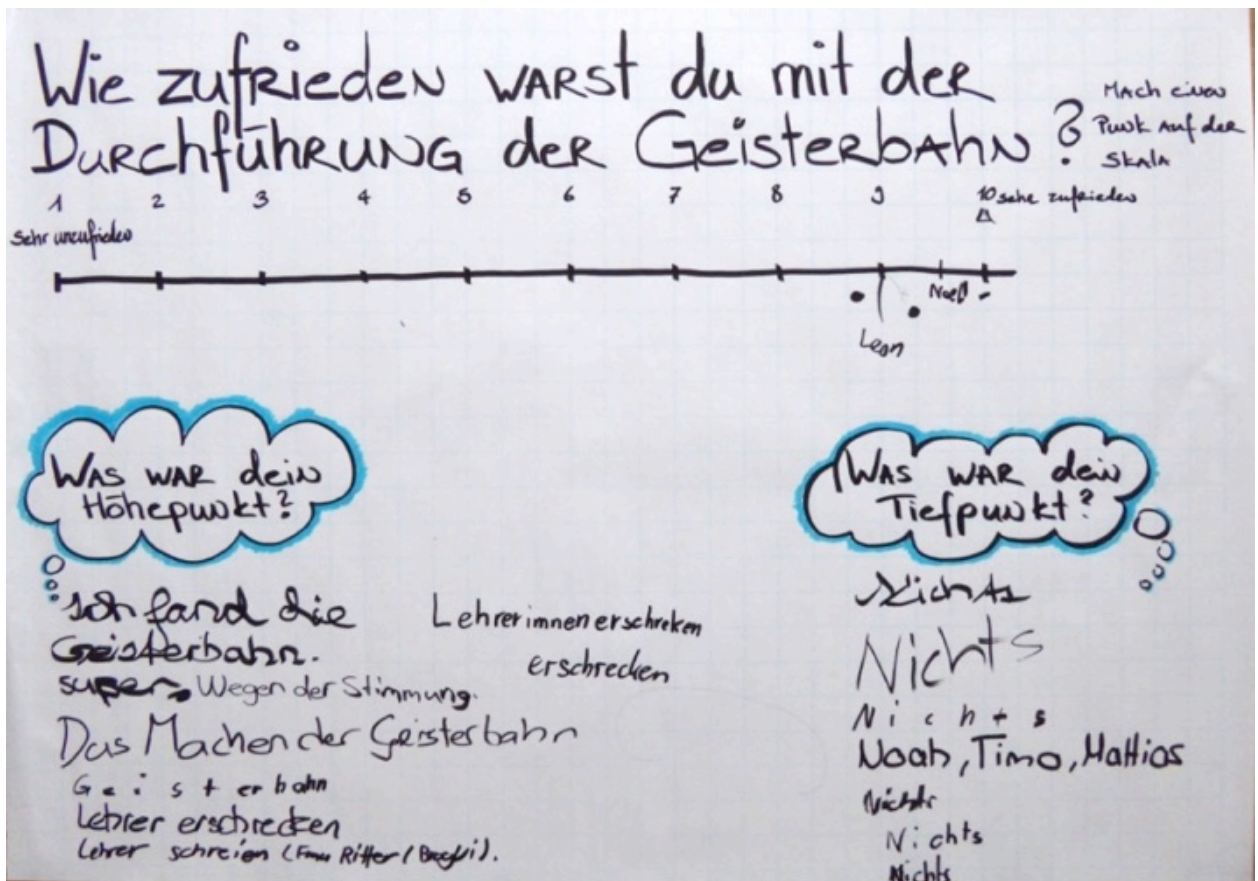 Wie zufrieden warst du mit der
Durchführung der Geisterbahn?
Mach einen
Punkt auf der
Skala
1 2 3 4 5 6 7 8 9 10 sehr zufrieden
Sehr unzufrieden
Noel
Leon
Was war dein
Höhepunkt?
Ich fand die
Geisterbahn.
super, Wegen der Stimmung.
Lehrerinnen erschreken
erschrecken
Das Machen der Geisterbahn
Geisterbahn
Lehrer erschrecken
Lehrer schreien (Frau Ritter /
Was war dein
Tiefpunkt?
Nichts
Nichts
Nichts
Noah, Timo, Mattias
Nichts
Nichts
Nichts